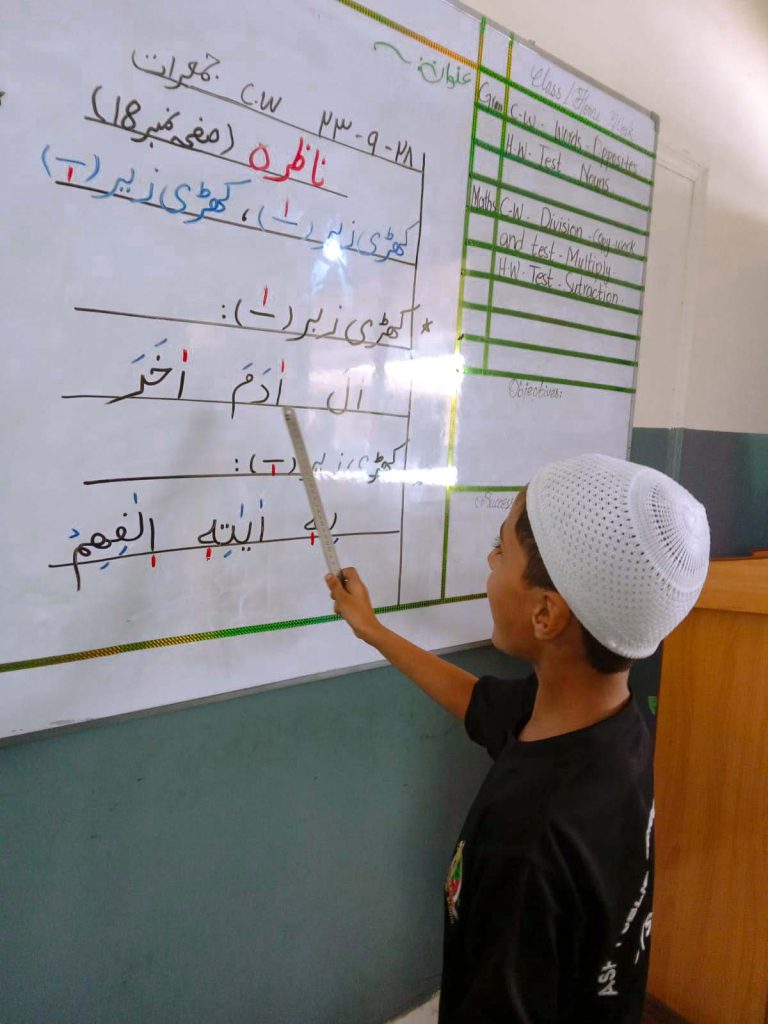 عنوان:
جمعرات C.W ۲۳-۹-۲۸
ناظرہ (صفحہ نمبر 18)
کھڑی زبر (ــٰـ)، کھڑی زیر (ــٖـ)
* کھڑی زبر (ــٰـ):
اٰلَ اٰدَمَ اٰخَرَ
کھڑی زیر (ــٖـ):
بِہٖ اٰیٰتِہٖ اٖلٰفِھِمْ
Class / Home Work
Gram C.W - Words - Opposites
H.W - Test Nouns
Maths C.W - Division - Copy work
and test - Multiply -
H.W - Test - Sutraction
Objectives:
Success